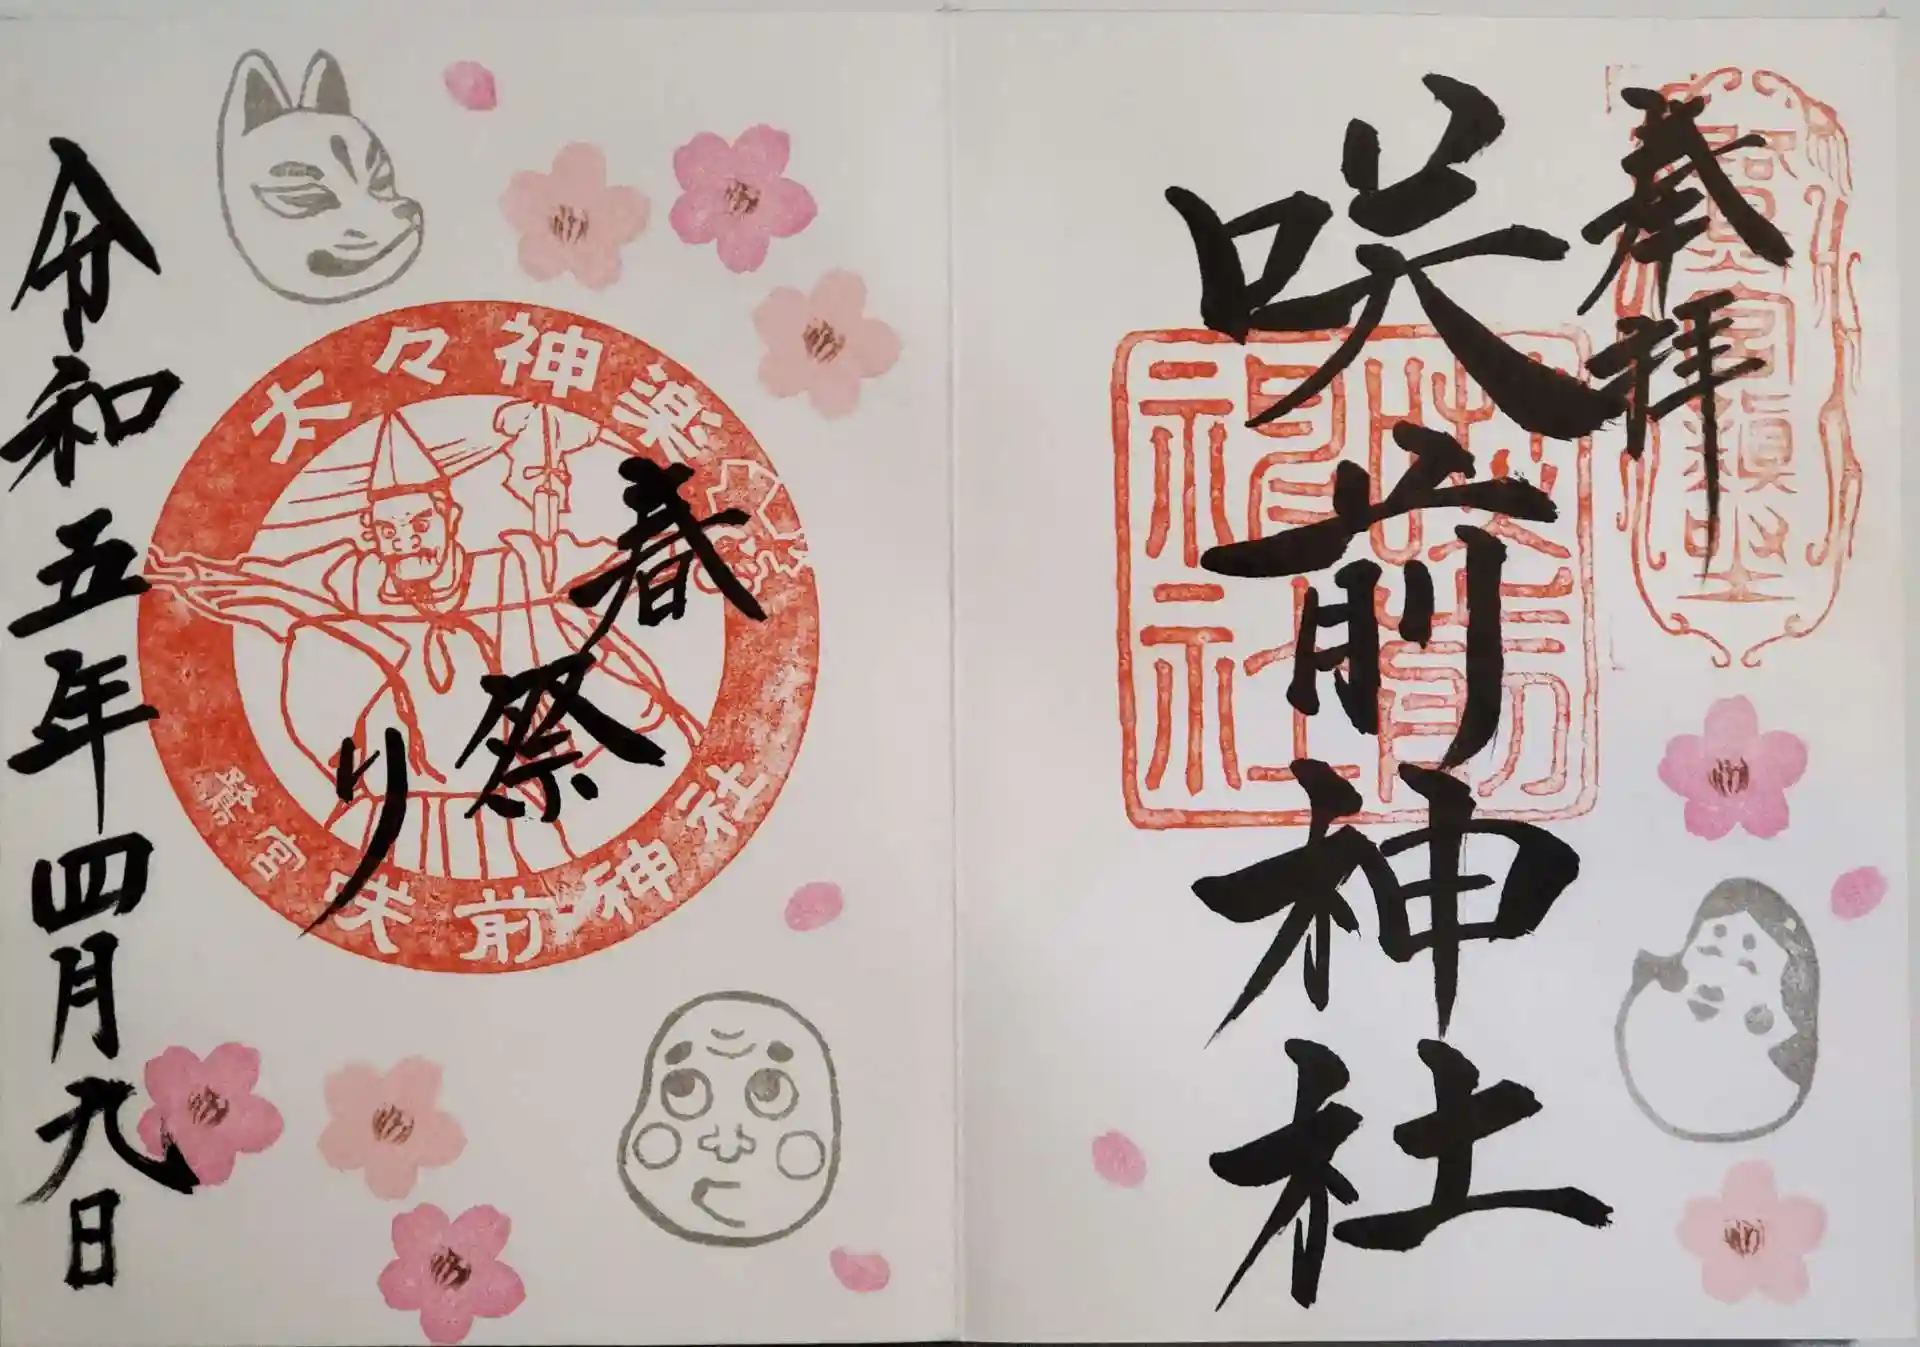 奉拝
咲前神社
咲前
神社
春祭り
太々神楽
鷺宮 咲前神社
令和五年四月九日